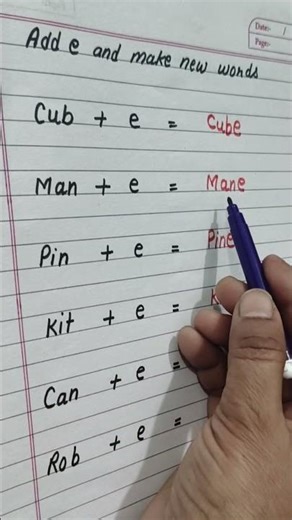 Date:- /
Page:-
Add e and make new words
Cub + e = Cube
Man + e = Mane
Pin + e = Pine
Kit + e =
Can + e =
Rob + e =